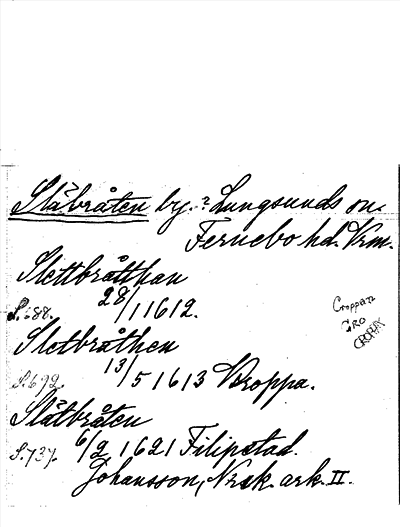 Slåbråten by. ? Lungsunds sn.
Fernebo hd. Vrm.
Slettbråtthan
28/1 1612.
S. 688.
Sletbråthen
13/5 1613 Kroppa.
S. 692.
Slåtbråten
S. 737. 6/2 1621 Filipstad.
Johansson, Nrsk. ark. II.
Croppan
CRO